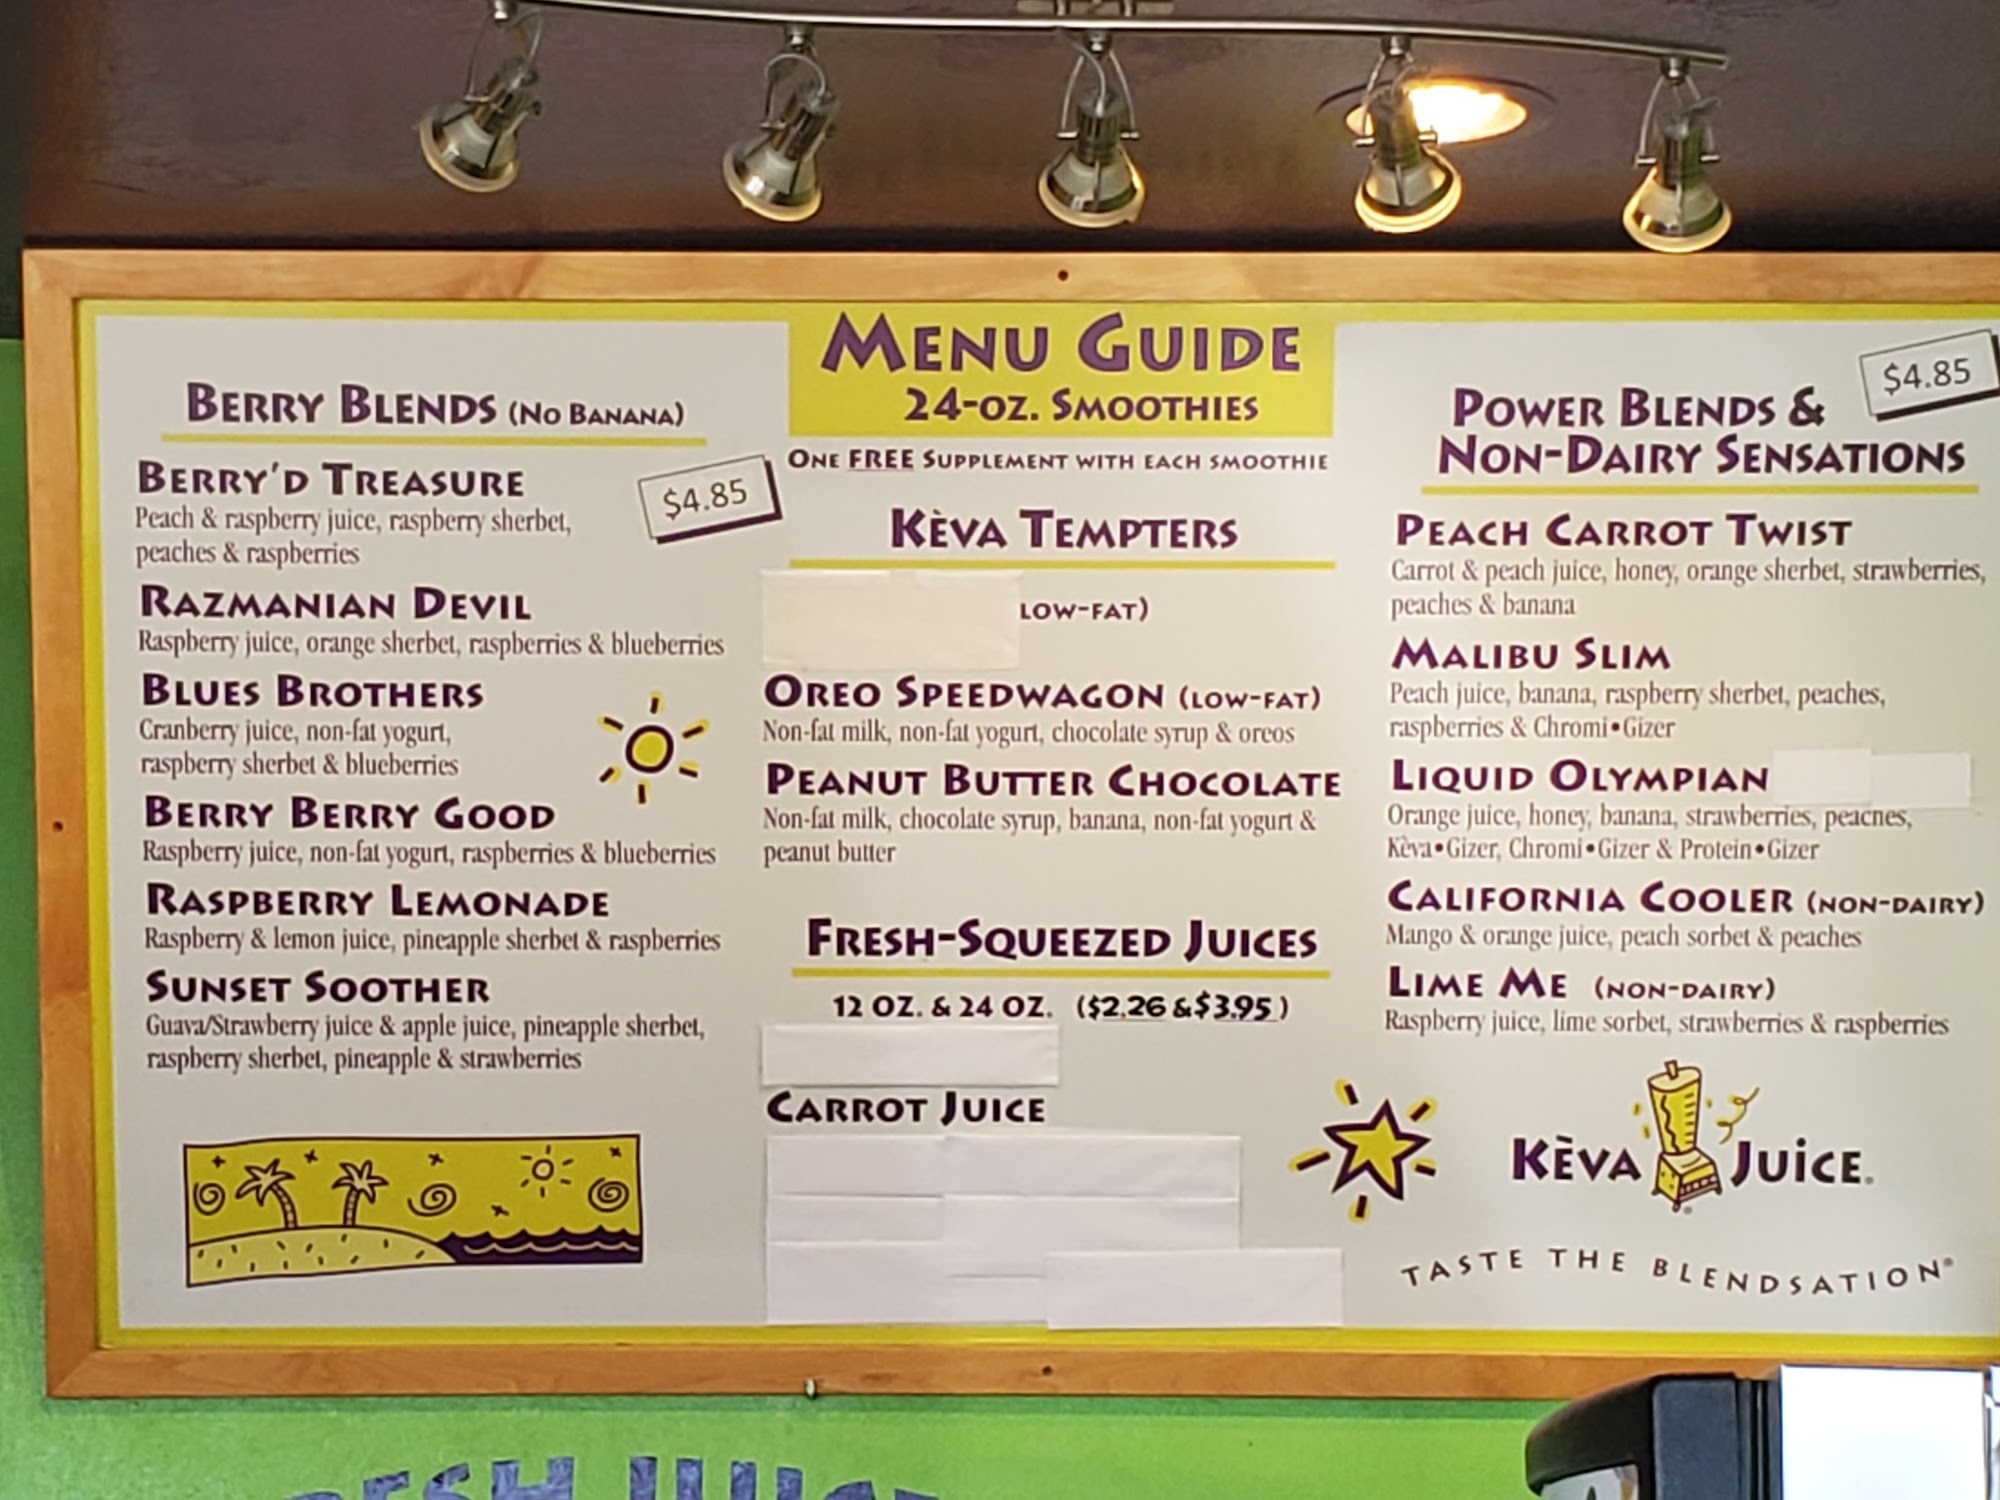 MENU GUIDE
24-OZ. SMOOTHIES
ONE FREE SUPPLEMENT WITH EACH SMOOTHIE
BERRY BLENDS (NO BANANA)
$4.85
BERRY'D TREASURE
Peach & raspberry juice, raspberry sherbet,
peaches & raspberries
RAZMANIAN DEVIL
Raspberry juice, orange sherbet, raspberries & blueberries
BLUES BROTHERS
Cranberry juice, non-fat yogurt,
raspberry sherbet & blueberries
BERRY BERRY GOOD
Raspberry juice, non-fat yogurt, raspberries & blueberries
RASPBERRY LEMONADE
Raspberry & lemon juice, pineapple sherbet & raspberries
SUNSET SOOTHER
Guava/Strawberry juice & apple juice, pineapple sherbet,
raspberry sherbet, pineapple & strawberries
KÈVA TEMPTERS
LOW-FAT)
OREO SPEEDWAGON (LOW-FAT)
Non-fat milk, non-fat yogurt, chocolate syrup & oreos
PEANUT BUTTER CHOCOLATE
Non-fat milk, chocolate syrup, banana, non-fat yogurt &
peanut butter
FRESH-SQUEEZED JUICES
12 OZ. & 24 OZ. ($2.26 & $3.95)
CARROT JUICE
$4.85
POWER BLENDS &
NON-DAIRY SENSATIONS
PEACH CARROT TWIST
Carrot & peach juice, honey, orange sherbet, strawberries,
peaches & banana
MALIBU SLIM
Peach juice, banana, raspberry sherbet, peaches,
raspberries & Chromi•Gizer
LIQUID OLYMPIAN
Orange juice, honey, banana, strawberries, peaches,
Kèva•Gizer, Chromi•Gizer & Protein•Gizer
CALIFORNIA COOLER (NON-DAIRY)
Mango & orange juice, peach sorbet & peaches
LIME ME (NON-DAIRY)
Raspberry juice, lime sorbet, strawberries & raspberries
KÈVA JUICE®
TASTE THE BLENDSATION®